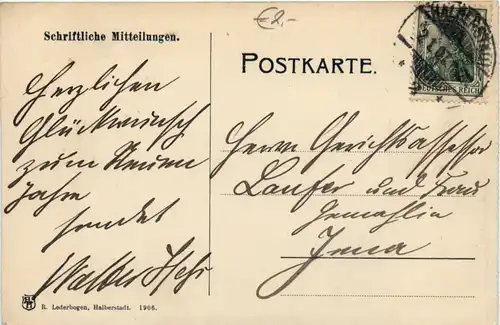 €2,-
Schriftliche Mitteilungen.
POSTKARTE.
DEUTSCHES REICH
Herzlichen
Glückwunsch
zum Neuen
Jahre
sendet
Walter
Herrn Gerichtsassessor
Laufer und Frau
Gemahlin
Jena
R. Lederbogen, Halberstadt. 1906.